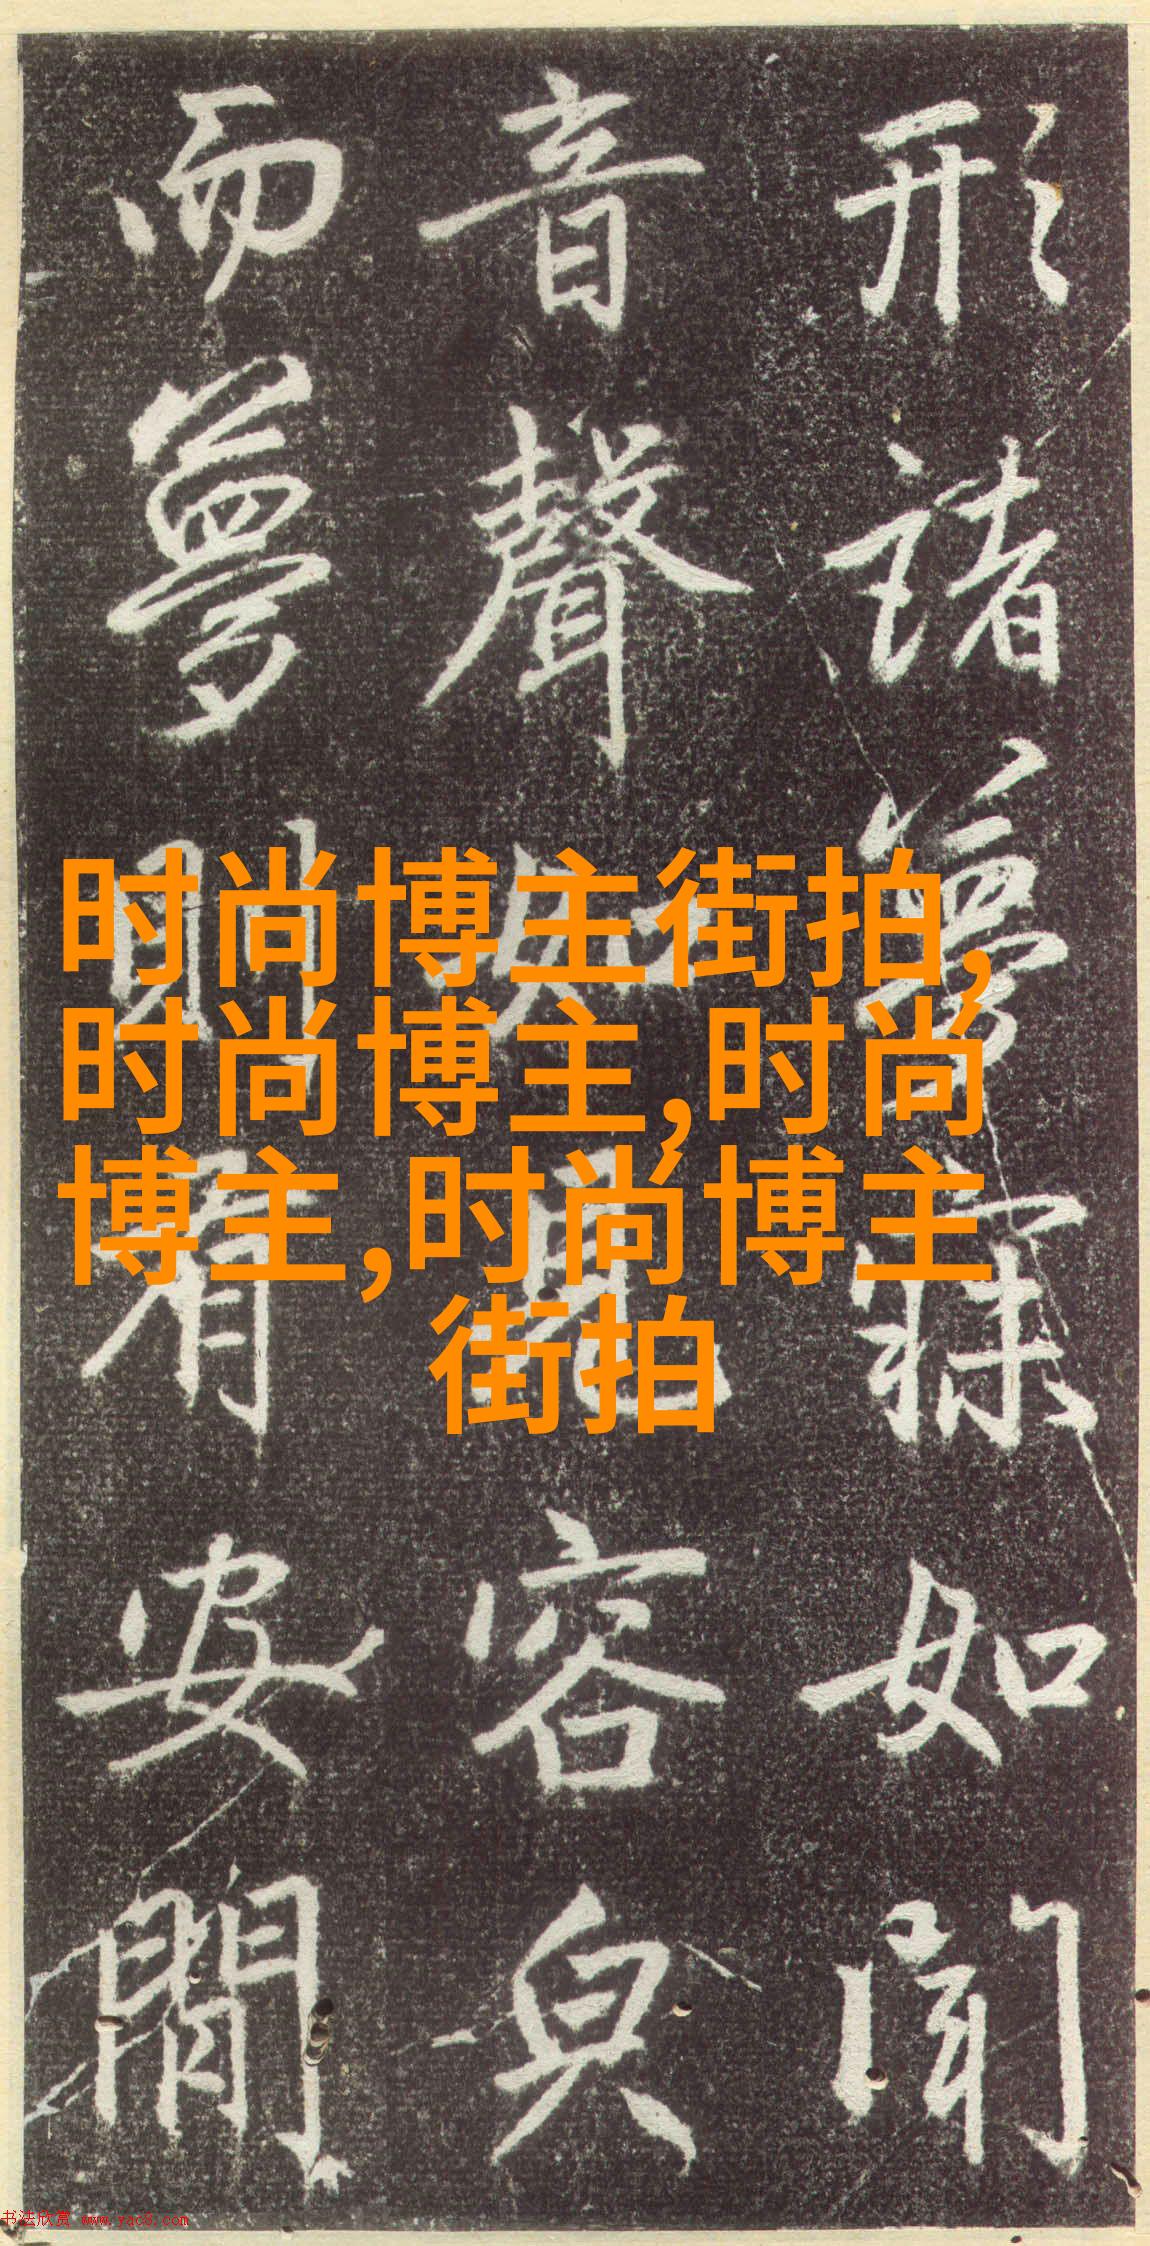 形諸夢寐如聞
音聲如見容皃
而夢則有安閒
时尚博主街拍,
时尚博主,时尚
博主,时尚博主
街拍
书法欣赏 www.yac8.com